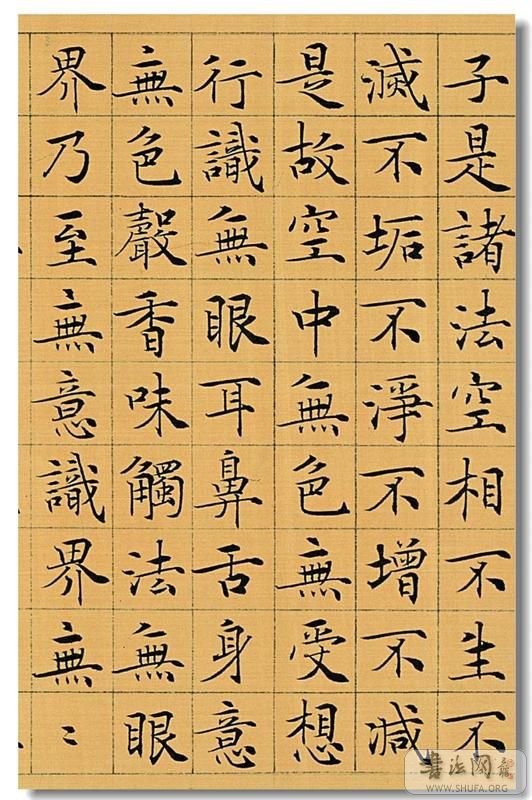 子是諸法空相不生不
滅不垢不淨不增不減
是故空中無色無受想
行識無眼耳鼻舌身意
無色聲香味觸法無眼
界乃至無意識界無〻
書法网
WWW.SHUFA.ORG